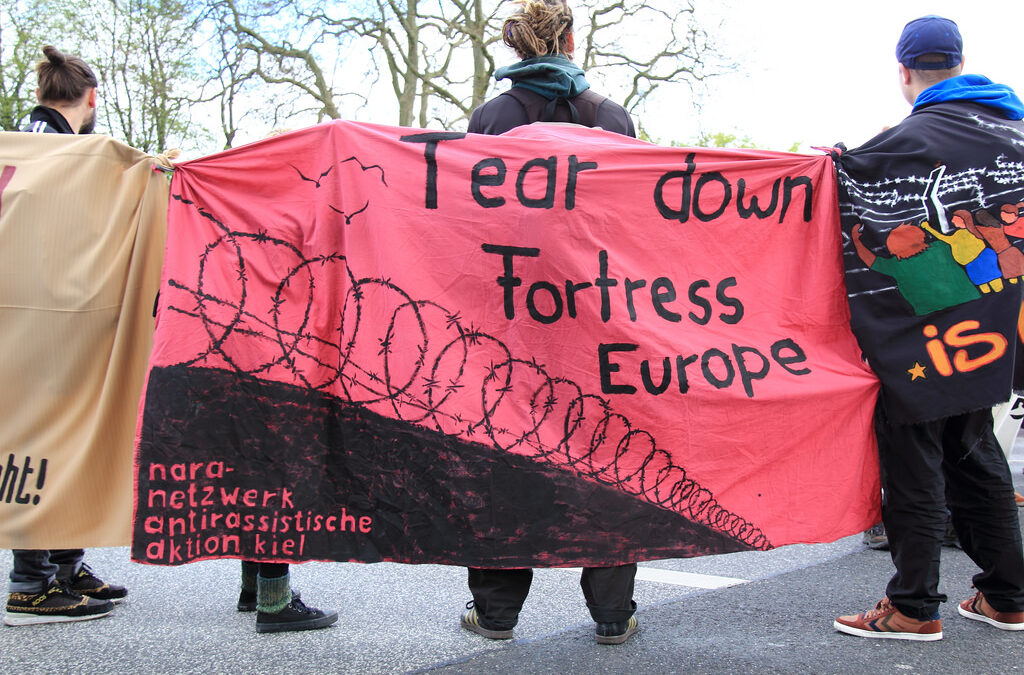 Tear down
Fortress
Europe
nara-
netzwerk
antirassistische
aktion kiel
is
ht!